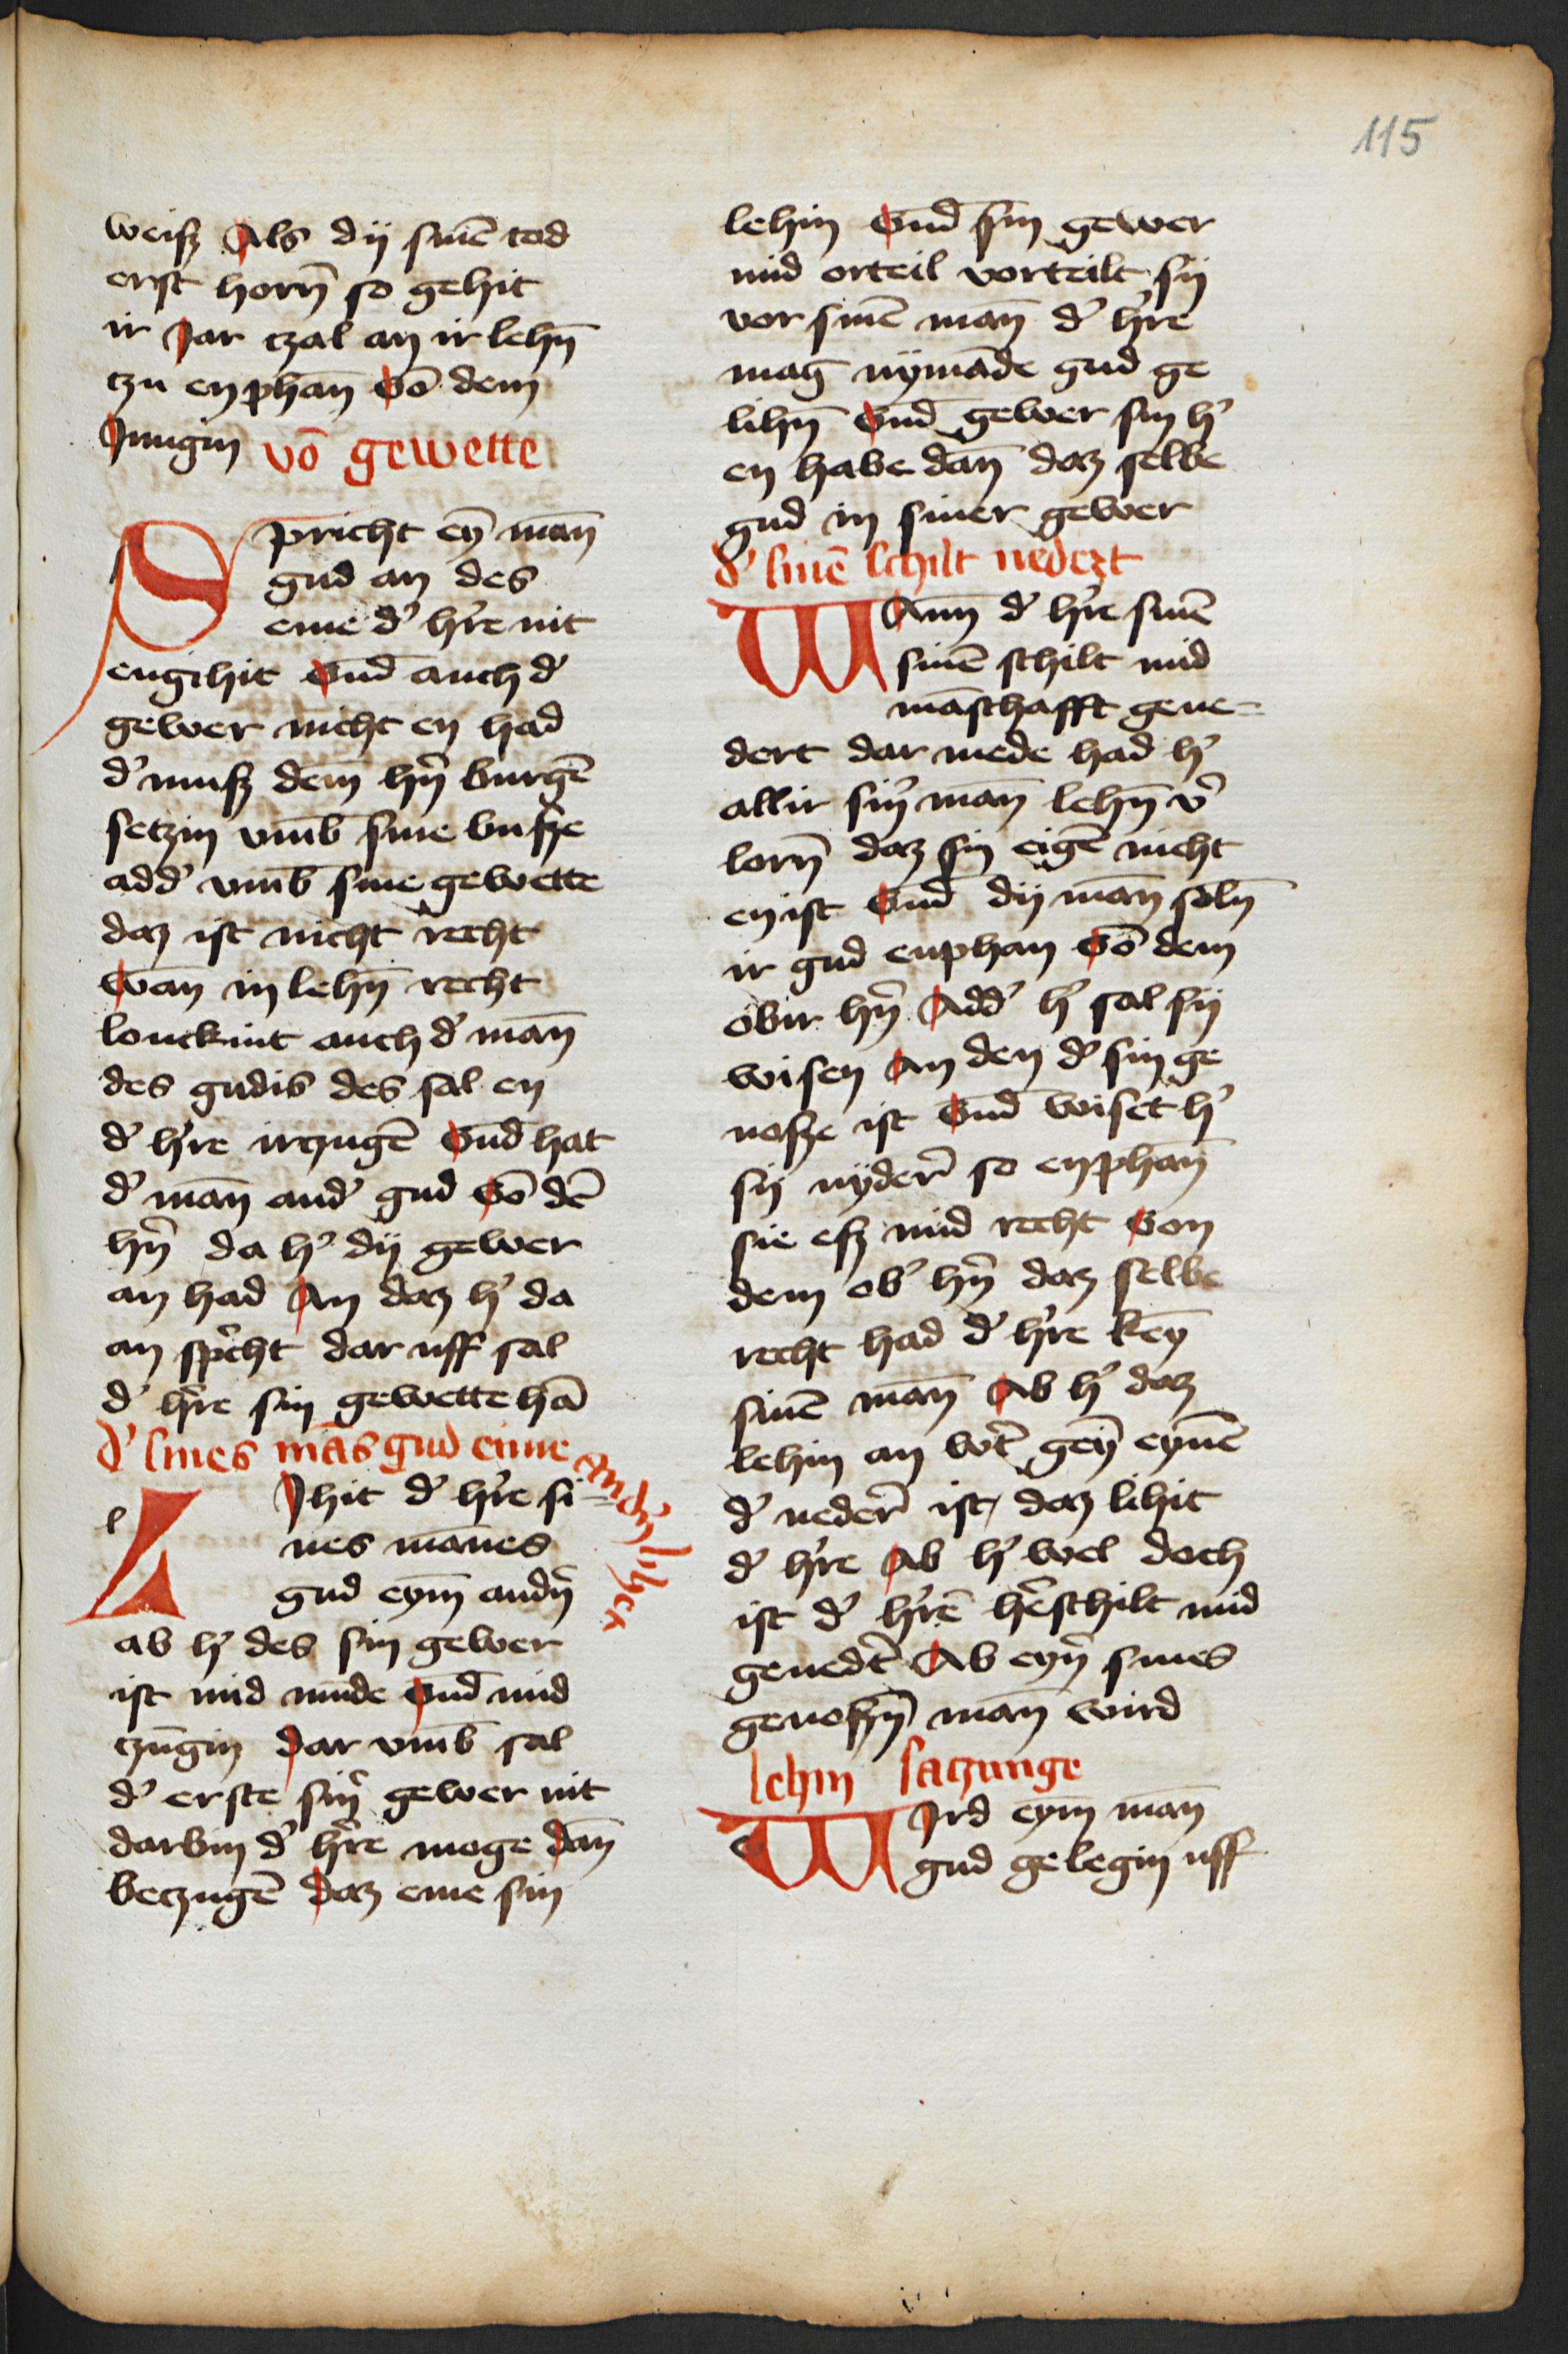 115
weisz Als dij sinē tod
erst horn̄ so gehit
ir Jar tzal an ir lehn̄
tzu enphan̄ vō dem
Jungin vō gewette
Spricht eȳ man̄
gud an des
eme d' h're nit
engihit vnd̄ auch d'
gewer nicht en had
d' musz dem̄ hn̄ burgē
setzin vmb̄ sine busze
add' vmb̄ sine gewette
daz ist nicht recht
wan̄ in lehn̄ recht
louckint auch d' man̄
des gudis des sal en
d' h're irtzugē vnd̄ hat
d' man̄ and' gud vō dē
hn̄ da h' dij gewer
an had An daz h' da
an sp'cht dar uff sal
d' h're sin gewette hā
d' sines mās gud eime
andn̄ lihet
l
LJhit d' h're si=
nes man̄es
gud eym̄ andn̄
ab h' des sin gewer
ist mid mūde vnd̄ mid
tzūgin Dar vmb̄ sal
d' erste sin' gewer nit
darbin d' h're moge dan̄
betzugē daz eme sin
lehin vnd̄ sin gewer
mid orteil vorteilt sij
vor sinē man̄ d' h're
mag nymāde gud ge
lihn̄ vnd̄ gewer sin h'
en habe dan̄ daz selbe
gud in siner gewer
d' sinē schilt nedert
WAnn d' h're sinē
sinē schilt mid
māschafft gene=
dert dar mede had h'
allir sin' man̄ lehn̄ v'
lorn̄ daz sin eigē nicht
en ist vnd̄ dij man̄ soln̄
ir gud enphan vō dem
obir hn̄ Add' h' sal sij
wisen An den d' sin ge
nosze ist vnd̄ wiset h'
sij nyder' so enphan̄
sie esz mid recht von
dem ob' hn̄ daz selbe
recht had d' h're keȳ
sinē man̄ Ab h' daz
lehin an wt' geȳ eynē
d' neder' ist daz lihit
d' h're Ab h' wel doch
ist d' h'rē h'eschilt mid
genedt' Ab eyn' sines
genoszn̄ man̄ wird
lehin satzunge
WJrd eym̄ man̄
gud gelegin uff